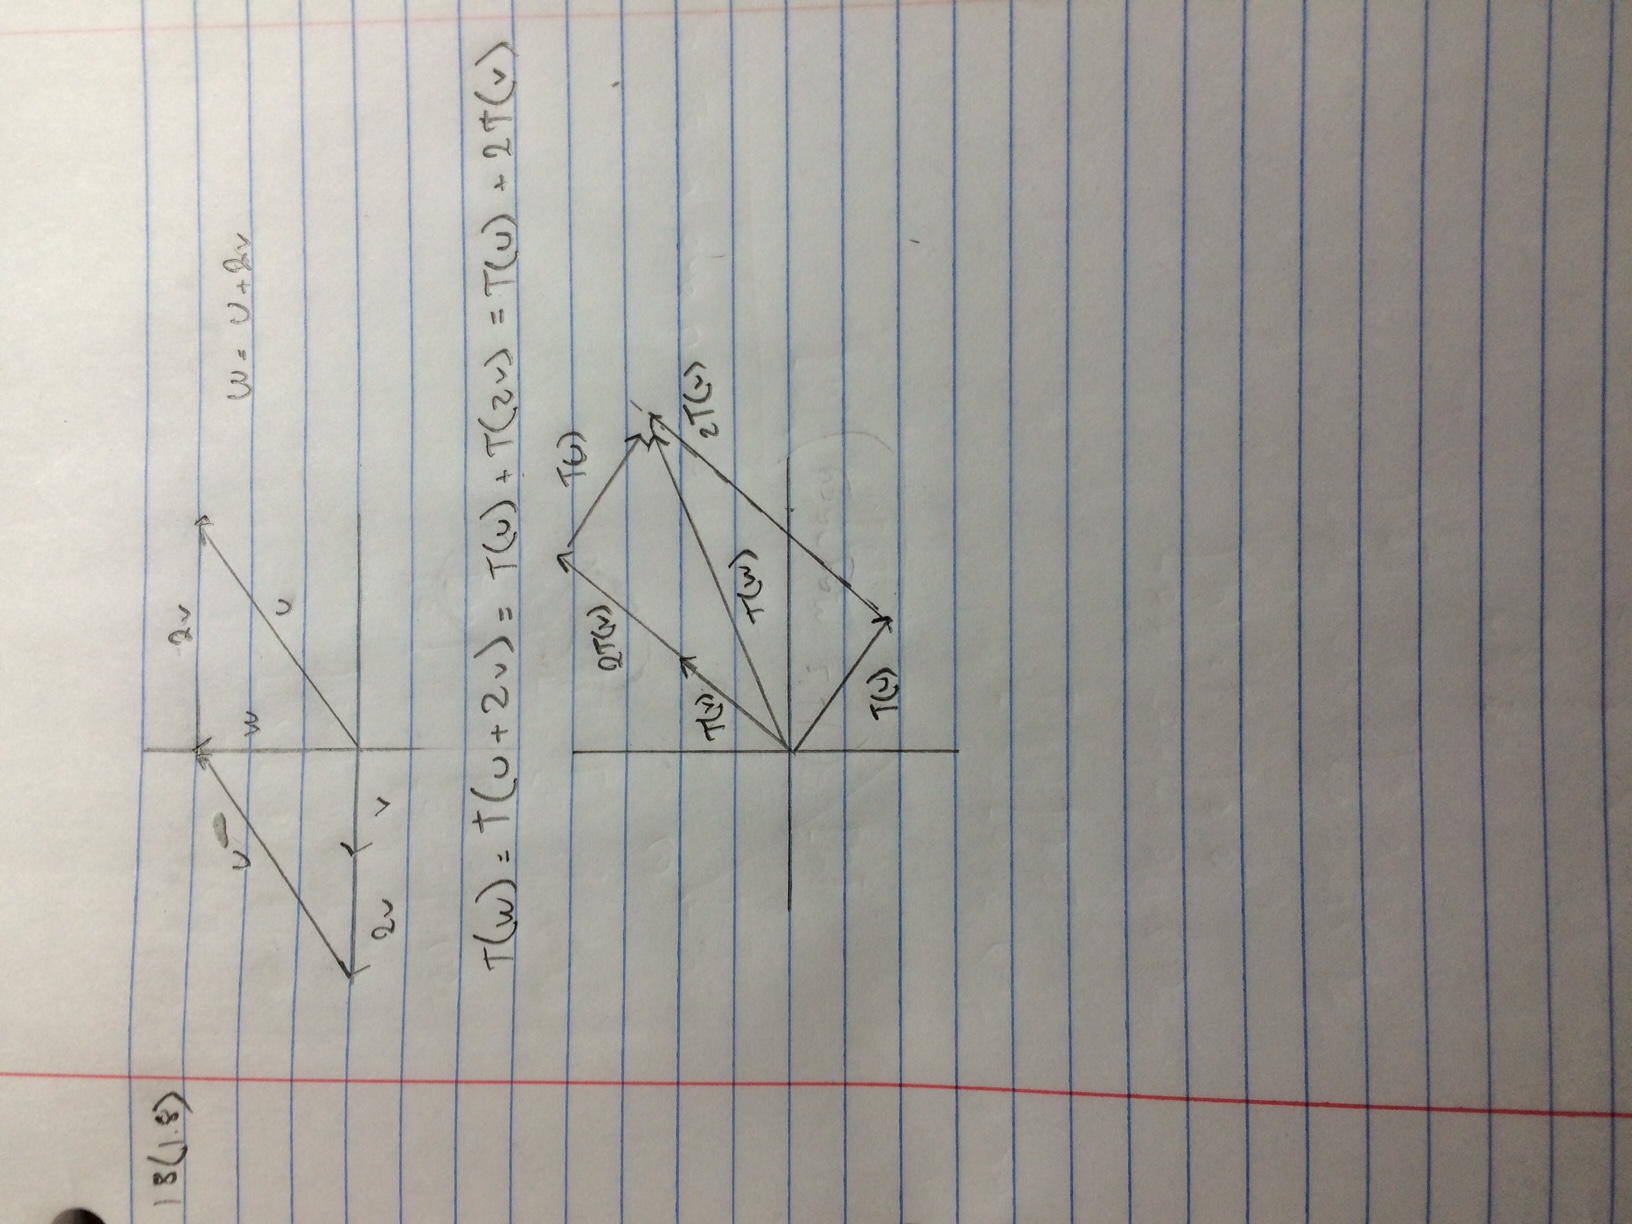 18(1.8)
2v
u
w
w = u + 2v
u
2v
v
T(w) = T(u + 2v) = T(u) + T(2v) = T(u) + 2T(v)
T(u)
2T(v)
T(v)
2T(v)
T(w)
T(u)